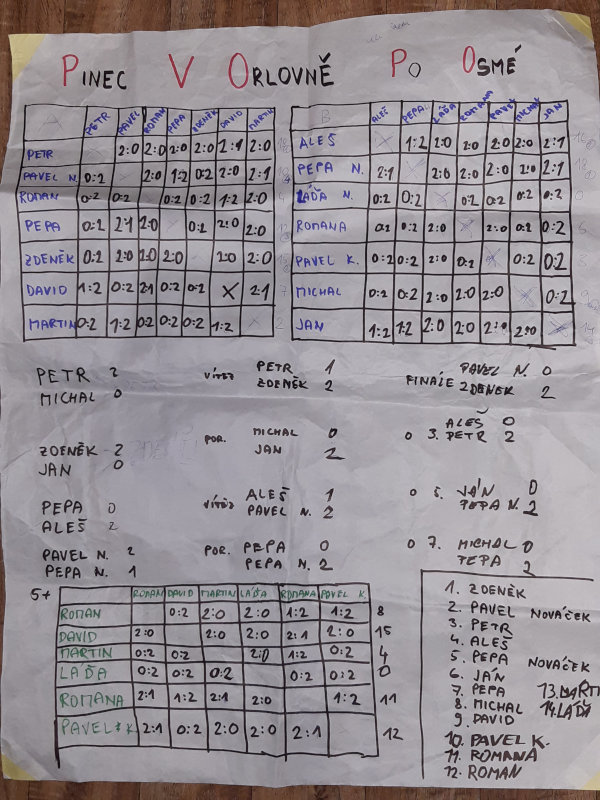 PINEC V ORLOVNĚ PO OSMÉ
A PETR PAVEL ROMAN PEPA ZDENĚK DAVID MARTIN
PETR 2:0 2:0 2:0 2:0 2:1 2:0
PAVEL N. 0:2 2:0 1:2 0:2 2:0 2:1
ROMAN 0:2 0:2 0:2 0:2 1:2 2:0
PEPA 0:2 2:1 2:0 0:2 2:0 2:0
ZDENĚK 0:2 2:0 2:0 2:0 2:0 2:0
DAVID 1:2 0:2 2:1 0:2 0:2 X 2:1
MARTIN 0:2 1:2 0:2 0:2 0:2 1:2
B ALEŠ PEPA LÁĎA ROMANA PAVEL MICHAL JAN
ALEŠ 1:2 2:0 2:0 2:0 2:0 2:1
PEPA N. 2:1 2:0 2:0 2:0 2:0 2:1
LÁĎA N. 0:2 0:2 0:2 0:2 0:2 0:2
ROMANA 0:2 0:2 2:0 2:0 0:2 0:2
PAVEL K. 0:2 0:2 2:0 0:2 0:2 0:2
MICHAL 0:2 0:2 2:0 2:0 2:0 0:2
JAN 1:2 1:2 2:0 2:0 2:0 2:0
PETR 2
MICHAL 0
ZDENĚK 2
JAN 0
PEPA 0
ALEŠ 2
PAVEL N. 2
PEPA N. 1
VÍTĚZ PETR 1
ZDENĚK 2
POR. MICHAL 0
JAN 2
VÍTĚZ ALEŠ 1
PAVEL N. 2
POR. PEPA 0
PEPA N. 2
FINÁLE PAVEL N. 0
ZDENEK 2
O 3. ALEŠ 0
PETR 2
O 5. JÁN 0
PEPA N. 2
O 7. MICHAL 0
PEPA 2
5+ ROMAN DAVID MARTIN LÁĎA ROMANA PAVEL K.
ROMAN 0:2 2:0 2:0 1:2 1:2 8
DAVID 2:0 2:0 2:0 2:1 2:0 15
MARTIN 0:2 0:2 2:0 1:2 0:2 4
LÁĎA 0:2 0:2 0:2 0:2 0:2 0
ROMANA 2:1 1:2 2:1 2:0 1:2 11
PAVEL K. 2:1 0:2 2:0 2:0 2:1 12
1. ZDENĚK
2. PAVEL NOVÁČEK
3. PETR
4. ALEŠ
5. PEPA NOVÁČEK
6. JÁN
7. PEPA
8. MICHAL
9. DAVID
10. PAVEL K.
11. ROMANA
12. ROMAN
13. MARTI
14. LÁĎA